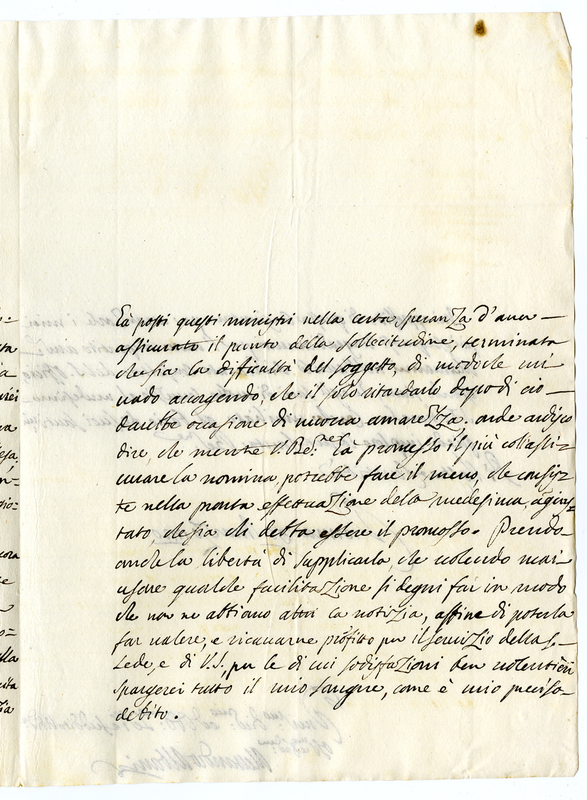 hà posti questi ministri nella certa speranza d'aver
assicurato il punto della sollecitudine, terminata
che sia la difficoltà del soggetto, di modoche mi
vado accorgendo, che il solo ritardarlo dopo di cio
darebbe occasione di nuova amarezza. onde ardisco
dire, che mentre V. Re. hà promesso il più col
curare la nomina, potrebbe fare il meno, che consis
te nella pronta effettuazione della medesima, aggius
tato, che sia chi debba essere il promosso. Prendo
anche la libertà di supplicarla, che volendo mai
usare qualche facilitazione si degni far in modo
che non ne abbiano altri la notizia, affine di poterla
far valere, e ricavarne profitto per il servizio della S.
Sede, e di V.S., per le di cui sodisfazioni ben volentieri
spargerei tutto il mio sangue, come è mio preciso
debito.